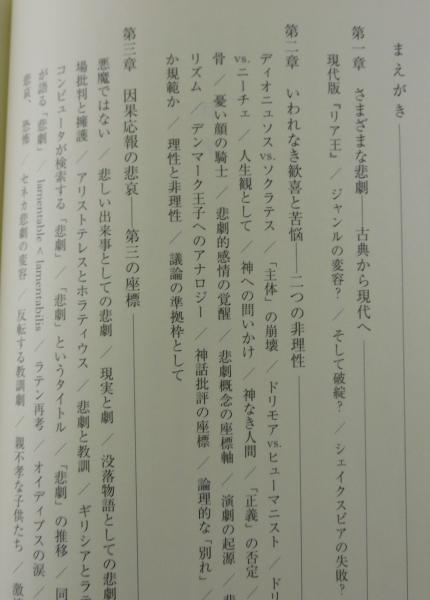 まえがき
第一章 さまざまな悲劇──古典から現代へ
現代版『リア王』／ジャンルの変容？／そして破綻？／シェイクスピアの失敗？
第二章 いわれなき歓喜と苦悩──二つの非理性
ディオニュソスvs.ソクラテス／「主体」の崩壊／ドリモアvs.ヒューマニスト／ドリ
vs.ニーチェ／人生観として／神への問いかけ／神なき人間／「正義」の否定／
骨／憂い顔の騎士／悲劇的感情の覚醒／悲劇概念の座標軸／演劇の起源／悲
リズム／デンマーク王子へのアナロジー／神話批評の座標／論理的な「別れ」／
か規範か／理性と非理性／議論の準拠枠として
第三章 因果応報の悲哀──第三の座標
悪魔ではない／悲しい出来事としての悲劇／現実と劇／没落物語としての悲劇
場批判と擁護／アリストテレスとホラティウス／悲劇と教訓／ギリシアとラテ
コンピュータが検索する「悲劇」／「悲劇」というタイトル／「悲劇」の推移／同
が語る「悲劇」／lamentable＜lamentabilis／ラテン再考／オイディプスの涙／
悲哀、恐怖／セネカ悲劇の変容／反転する教訓劇／親不孝な子供たち／激